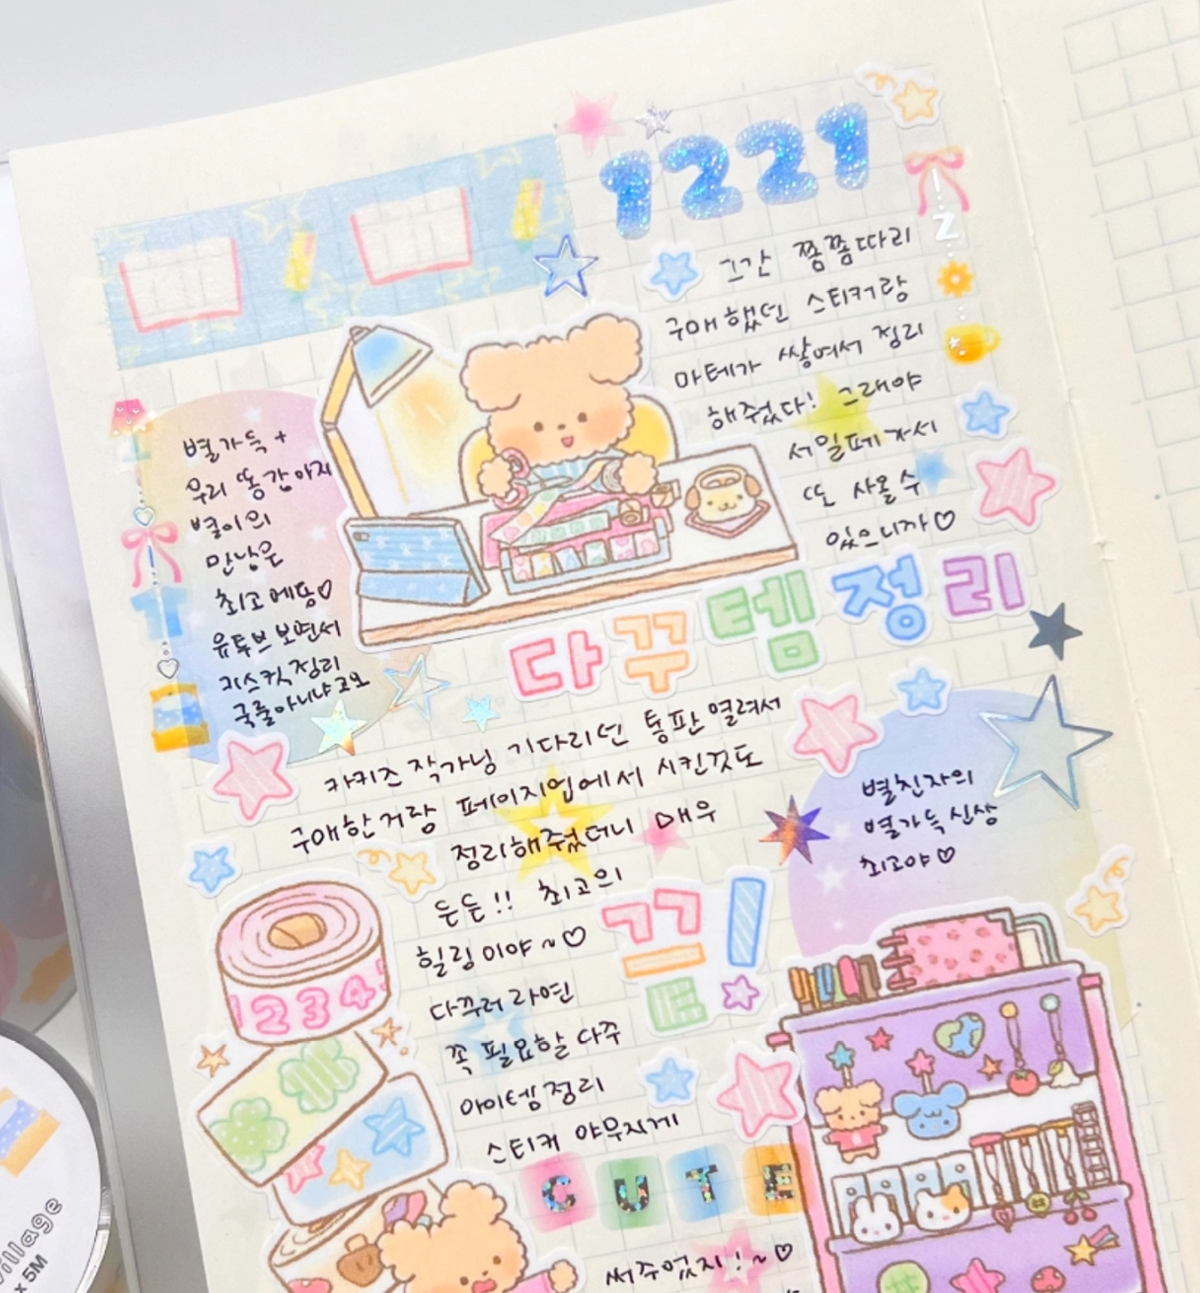 1221
그간 쫌쫌따리
구매했던 스티커랑
마테가 쌓여서 정리
해주었다! 그래야
서일페 가서
또 사올 수
있으니까♡
별가득+
우리 똥강아지
별이의
만남은
최고예동♡
유튜브 보면서
키스컷 정리
국룰아니냐고요
다꾸템정리
카키즈 작가님 기다리던 통판 열려서
구매한거랑 페이지업에서 시킨것도
정리해줬더니 매우
든든!! 최고의
힐링이야~♡
다꾸러라면
꼭 필요할 다꾸
아이템 정리
스티커 야무지게
CUTE
써주었지!~♡
끼트
별친자의
별가득 신상
최고야♡
1234
village
x 5M